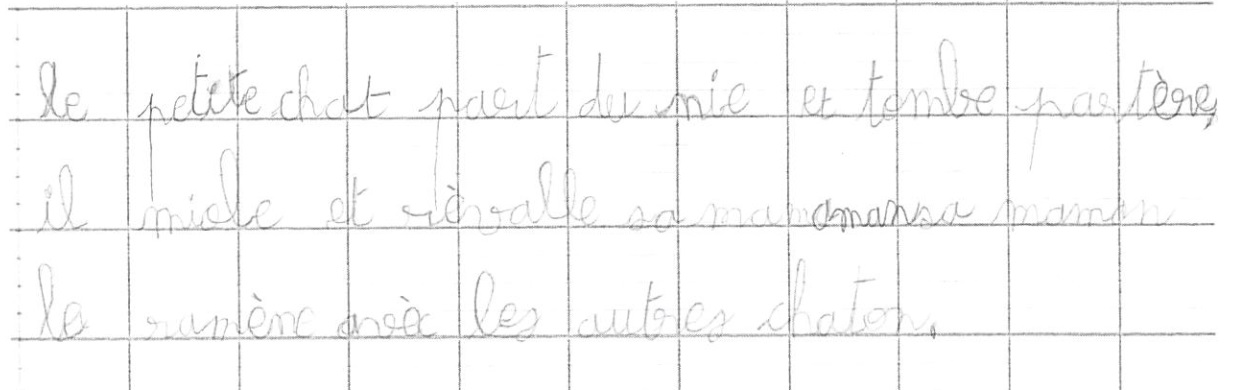 le petite chat part du nie et tombe par tère,
il miole et rèvalle sa mamamansa maman
le ramène avèc les autres chaton.